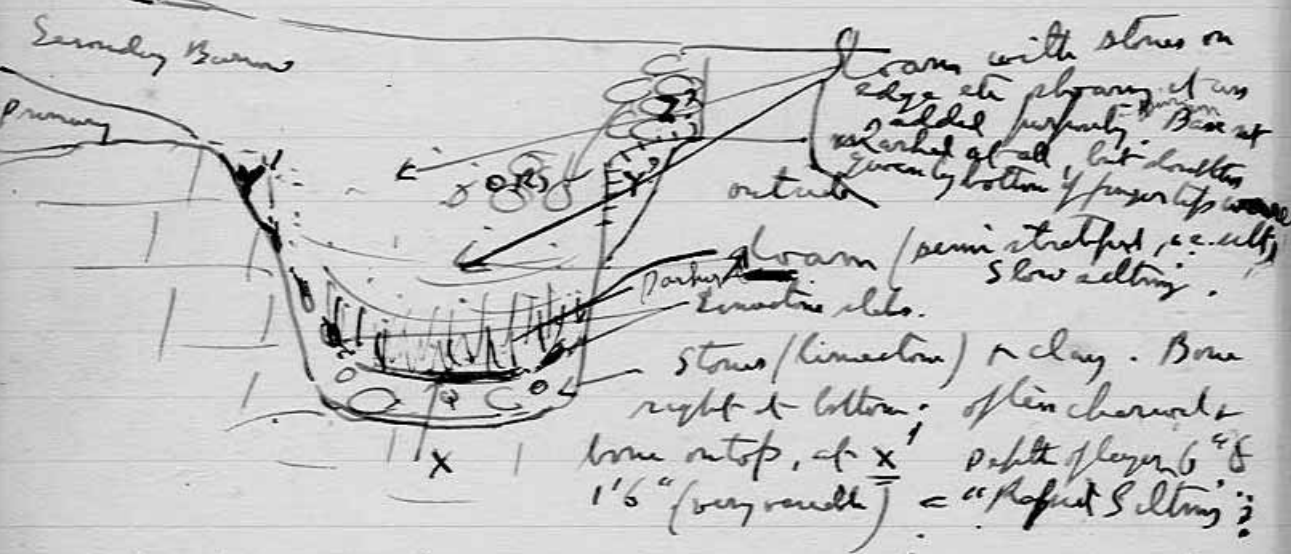 Secondary Barrow
Primary
Loam with stones on
edge etc showing it was
added purposely. Base not
marked at all, but doubtless
given by bottom of finger tips
outside
Loam (semi stratified, i.e. silty
Slow silting.
Darker
Limestone slabs.
Stones (limestone) & clay. Bone
right at bottom; often charcoal &
bone on top, at X Depth of layer 6" to
X 1'6" (very variable) = "Rapid Silting";